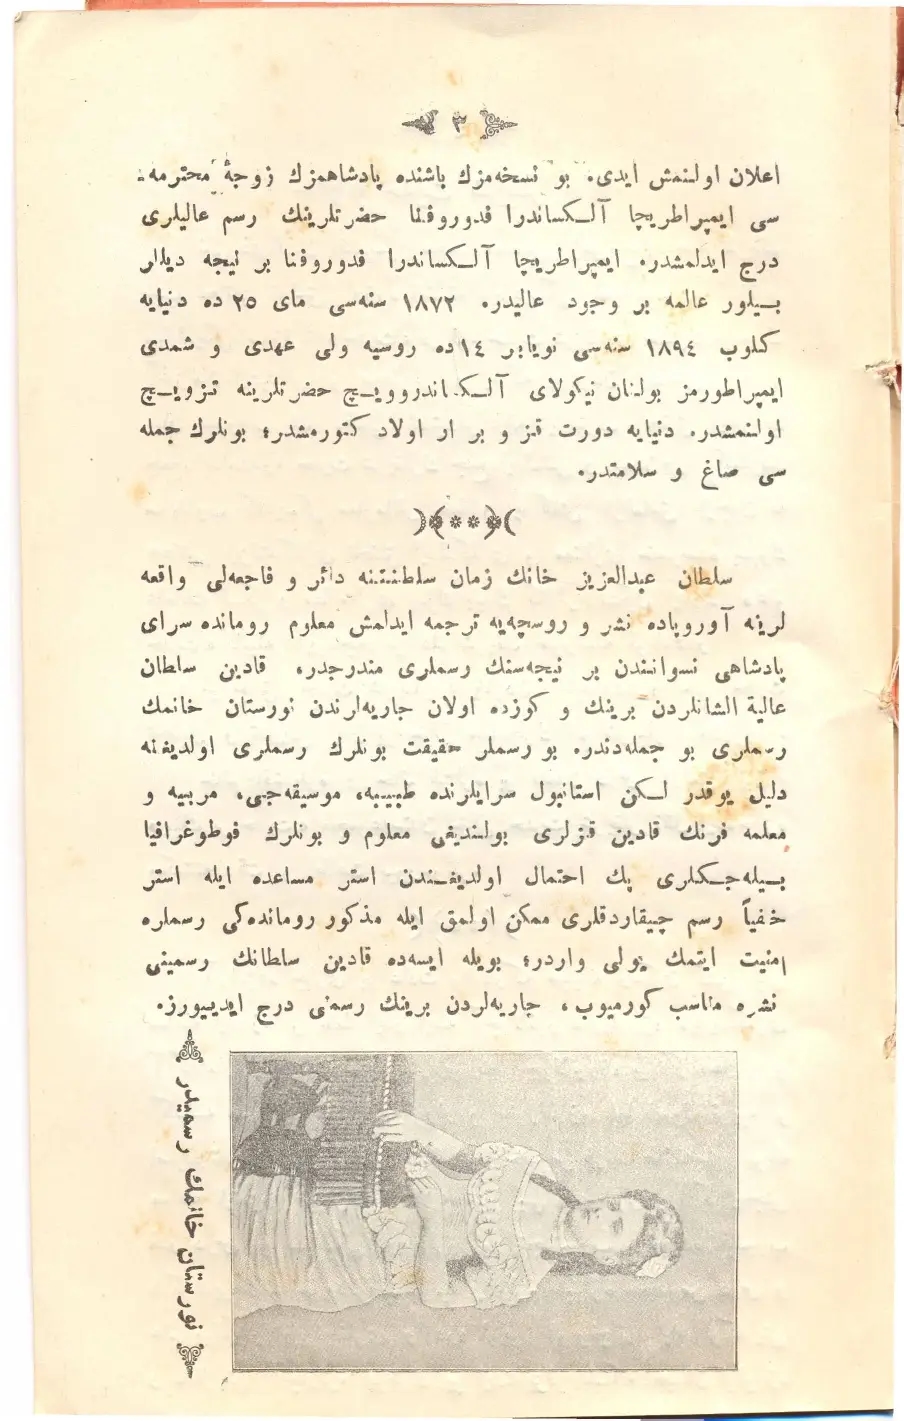 ٣
اعلان اولنمش ایدی. بو نسخه‌مزك باشنده پادشاهمزك زوجۀ محترمه‌
سی ایمپراطریچا آلكساندرا فدوروفنا حضرتلرینك رسم عالیلری
درج ایدلمشدر. ایمپراطریچا آلكساندرا فدوروفنا بر نیجه دیللر
بیلور عالمه بر وجود عالیدر. ١٨٧٢ سنه‌سی مای ٢٥ ده دنیایه
كلوب ١٨٩٤ سنه‌سی نویابر ١٤ده روسیه ولی عهدی و شمدی
ایمپراطورمز بولنان نیكولای آلكساندروویچ حضرتلرینه تزویج
اولنمشدر. دنیایه دورت قز و بر ار اولاد كتورمشدر؛ بونلرك جمله
سی صاغ و سلامتدر.
سلطان عبدالعزیز خانك زمان سلطنتنه دائر و فاجعه‌لی واقعه
لرینه آوروپاده نشر و روسچه‌یه ترجمه ایدلمش معلوم رومانده سرای
پادشاهی نسوانندن بر نیجه‌سنك رسملری مندرجدر، قادین سلطان
عالیة الشانلردن برینك و كوزده اولان جاریه‌لرندن نورستان خانمك
رسملری بو جمله‌دندر. بو رسملر حقیقت بونلرك رسملری اولدیغنه
دلیل یوقدر لكن استانبول سرایلرنده طبیبه، موسیقه‌جی، مربیه و
معلمه فرنك قادین قزلری بولندیغی معلوم و بونلرك فوطوغرافیا
بیله‌جكلری پك احتمال اولدیغندن استر مساعده ایله استر
خفیاً رسم چیقاردقلری ممكن اولمق ایله مذكور رومانده‌كی رسملره
امنیت ایتمك یولی واردر؛ بویله ایسه‌ده قادین سلطانك رسمینی
نشره مناسب كورمیوب، جاریه‌لردن برینك رسمنی درج ایدییورز.
نورستان خانمك رسمیدر